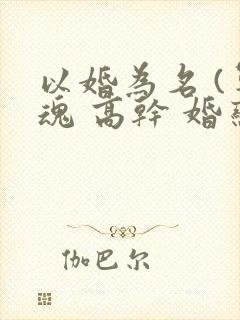 以婚為名(
魂 高幹 婚
伽巴尔